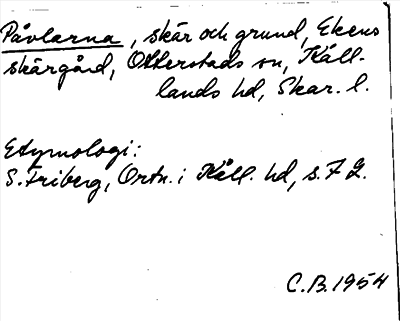 Påvlarna, skär och grund, Ekens
skärgård, Otterstads sn, Kål-
lands hd, Skar. l.
Etymologi:
S. Friberg, Ortn. i Kåll. hd, s. 72.
C.B. 1954